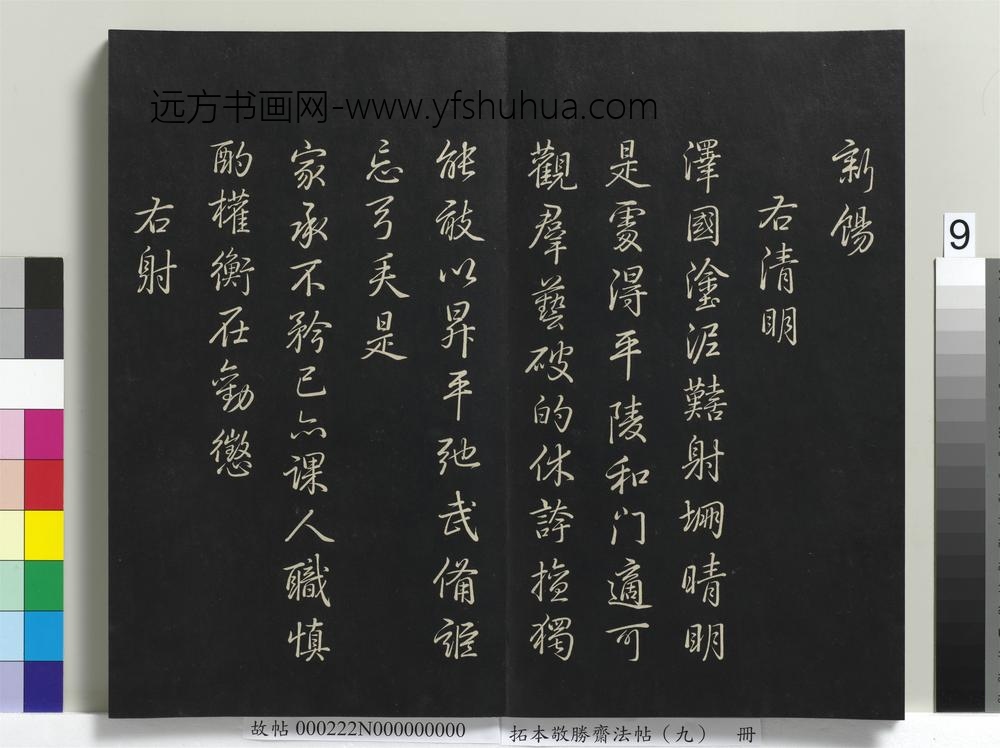 远方书画网-www.yfshuhua.com
新餳
右清明
澤國塗泥難射堋晴明
是處得平陵和门適可
觀羣藝破的休誇擅獨
能敢以昇平弛武備詎
忘弓矢是
家承不矜已亦課人職慎
酌權衡在勸懲
右射
9
故帖 000222N000000000
拓本敬勝齋法帖（九） 冊